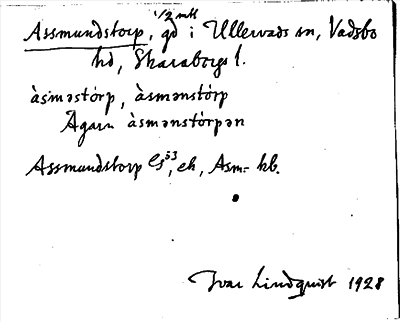 Assmundstorp, 1/2 mtl gd i Ullervads sn, Vadsbo
hd, Skaraborgs l.
àsməstórp, àsmənstórp
Ägarn àsmənstórpən
Assmundstorp GS33, ek, Asm- kb.
Ivar Lindquist 1928